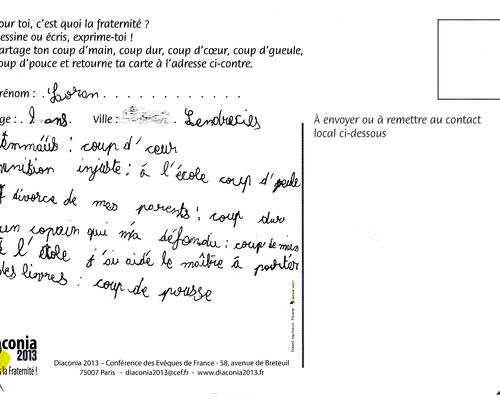 our toi, c'est quoi la fraternité ?
essine ou écris, exprime-toi !
artage ton coup d'main, coup dur, coup d'cœur, coup d'gueule,
oup d'pouce et retourne ta carte à l'adresse ci-contre.
rénom : . Loran . . . . . . . . . . . .
ge : . ans. Ville : . Lendrecies
À envoyer ou à remettre au contact
local ci-dessous
Emmaüs : coup d'cœur
unition injuste : à l'école coup d'
divorce de mes parents : coup dur
un copain qui m'a défendu : coup de main
à l'école j'ai aidé le maître à
des livres : coup de pousse
aconia
2013
la Fraternité !
Diaconia 2013 – Conférence des Evêques de France - 58, avenue de Breteuil
75007 Paris - diaconia2013@cef.fr - www.diaconia2013.fr